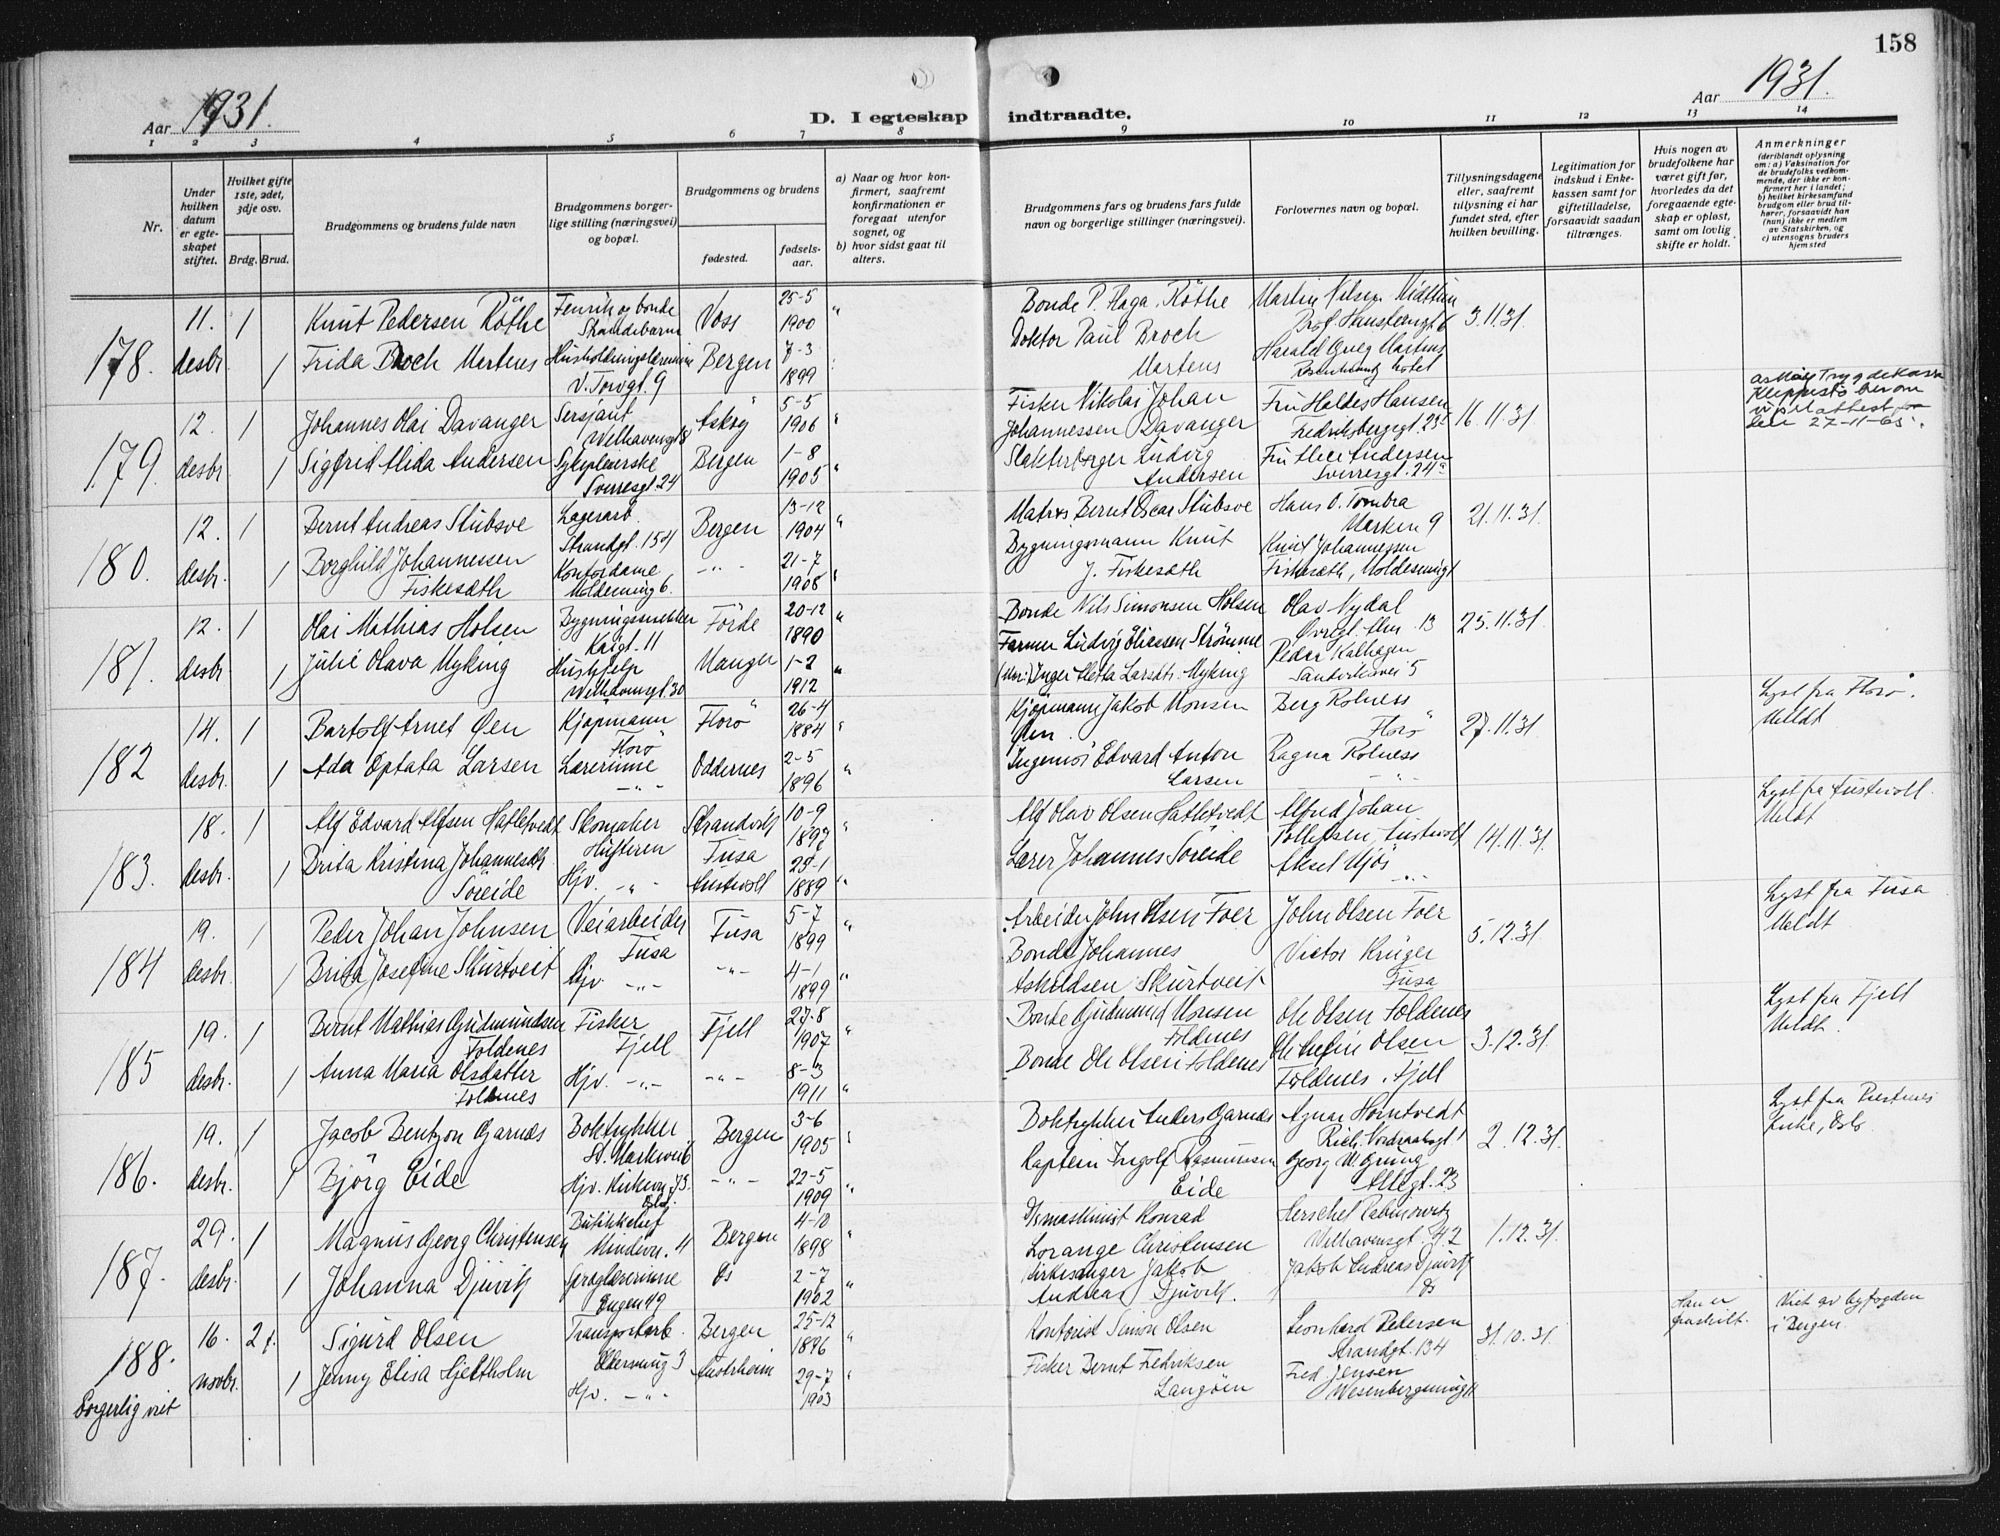 158
Aar 1931.
D. I egteskap indtraadte.
Aar 1931.
1 2 3 4 5 6 7 8 9 10 11 12 13 14
Nr.
Under hvilken datum er egteskapet stiftet.
Hvilket gifte 1ste, 2det, 3dje osv.
Brdg. Brud.
Brudgommens og brudens fulde navn
Brudgommens borgerlige stilling (næringsvei) og bopæl.
Brudgommens og brudens
fødested.
fødselsaar.
a) Naar og hvor konfirmert, saafremt konfirmationen er foregaat utenfor sognet, og
b) hvor sidst gaat til alters.
Brudgommens fars og brudens fars fulde navn og borgerlige stillinger (næringsvei).
Forlovernes navn og bopæl.
Tillysningsdagene eller, saafremt tillysning ei har fundet sted, efter hvilken bevilling.
Legitimation for indskud i Enkekassen samt for giftetilladelse, forsaavidt saadan tiltrænges.
Hvis nogen av brudefolkene har været gift før, hvorledes da det foregaaende egteskap er opløst, samt om lovlig skifte er holdt.
Anmerkninger
(deriblandt oplysning om: a) Vaksination for de brudefolks vedkommende, der ikke er konfirmert her i landet; b) hvilket kirkesamfund brudgom eller brud tilhører, forsaavidt han (hun) ikke er medlem av Statskirken, og c) utensogns bruders hjemsted
178.
11. desbr. 1 Knut Pedersen Röthe Fenrik og bonde Voss 25-5 1900 "
Bonde P. Haga Röthe Martin Nilsen 3.11.31.
1 Frida Broch Martens V. Torvgt 9 Bergen 7-3 1899
Doktor Paul Broch Martens Harald Grieg Martens hotel
179.
12. desbr. 1 Johannes Olai Davanger Sersjant Welhavensgt 8 Askøy 5-5 1906 "
Fisker Nikolai Johan Johannessen Davanger Fru Haldes Hansen Fredriksbergsgt. 16.11.31.
1 Sigfrid Alida Andersen Sykepleierske Sverresgt. 24 Bergen 1-8 1905 "
Slakterborger Ludvig Andersen Fru Alice Andersen Sverresgt. 24a
Askøy Trygdekasse Kleppestø
27-11-65.
180.
12. desbr. 1 Bernt Andreas Stubsve Lagerarb. Strandgt. 154 Bergen 13-12 1904 "
Matros Bernt Oscar Stubsve Hans O. Tombra Marken 9 21.11.31.
1 Borghild Johannessen Fiskesæth Kontordame 6. -"- 21-7 1908 "
Bygningsmann Knut J. Fiskesæth Knut Johannessen Fiskesæth,
181.
12. desbr. 1 Olai Mathias Holsen Bygningssnekker Kaigt. 11 Förde 20-12 1890 "
Bonde Nils Simonsen Holsen Olav Nydal Øvregt. 13 25.11.31.
1 Julie Olava Myking Hushjelp Welhavensgt. 30 Manger 1-2 1912 "
Farmer Ludvig Eliassen Strömme
(Mor:) Inger Aletta Larsdtr. Myking Peder Kalhagen Sandviksvei 5
182
14. desbr. 1 Bartolf Arnet Øen Kjøpmann Florø Florø 26-4 1884 "
Kjøpmann Jakob Monsen Øen. Berg Rolness Florø 27.11.31
1 Ada Optata Larsen Lærerinne -"- Oddernes 2-5 1896 "
Ingeniør Edvard Anton Larsen Ragna Rolness -"-
Lyst fra Florø.
Meldt.
183.
18. desbr. 1 Alf Edvard Alfsen Hatletvedt Skomaker Strandvik 10-9 1892 "
Alf Olav Olsen Hatletvedt Alfred Johan Tollefsen, Austevoll 14.11.31.
1 Brita Kristina Johannesdtr. Søreide Hjv. -"- Austevoll 29-1 1889 "
Fusa
Lærer Johannes Søreide Aksel -"-
Lyst fra Austevoll.
Meldt
184
19. desbr. 1 Peder Johan Johnsen Veiarbeider Fusa Fusa 5-7 1899 "
Arbeider John Olsen Foer John Olsen Foer 5.12.31.
1 Brita Josefine Skurtveit Hjv. -"- -"- 4-1 1899 "
Bonde Johannes Askildsen Skurtveit Victor Krüger Fusa
Lyst fra Fusa
Meldt
185
19. desbr. 1 Bernt Mathias Gudmundsen Foldenes Fisker Fjell Fjell 27-8 1907 "
Bonde Gudmund Monsen Foldenes Ole Olsen Foldenes 3.12.31.
1 Anna Maria Olsdatter Foldnes Hjv. -"- -"- 8-3 1911 "
Bonde Ole Olsen Foldenes Olsen Foldenes, Fjell
Lyst fra Fjell
Meldt.
186.
19. desbr. 1 Jacob Bentzon Garnæs Boktrykker Bergen 3-6 1905 "
Boktrykker Anders Garnæs Agnar Horntvedt Rich. Nordraaksgt 1 2.12.31.
1 Bjørg Eide Hjv. Kirkevn. 73. Oslo. -"- 22-5 1909 "
Kaptein Ingolf Rasmussen Eide Georg W. Grung Allegt. 23
Lyst fra Oslo
187.
29. desbr. 1 Magnus Georg Christensen Butikkchef Mindevn. 4 Bergen 4-10 1898 "
Konrad Lorange Christensen Herschel Rabinowitz Welhavensgt. 42 1.12.31.
1 Johanna Djuvik Engen 49 Os 2-7 1902 "
Kirkesanger Jakob Andreas Djuvik. Jakob Andreas Djuvik Os
188.
Borgerlig viet
16. novbr. 2 f. Sigurd Olsen Transportarb. 3 Bergen 25-12 1896 "
Kontorist Simon Olsen Leonhard Pedersen Strandgt. 134 31.10.31.
1 Jenny Elisa Hjeltholm Hjv. -"- Austrheim 29-7 1903
Fisker Bernt Fredriksen Langöen Fred Jensen
Han er fraskilt.
Viet av byfogden i Bergen.